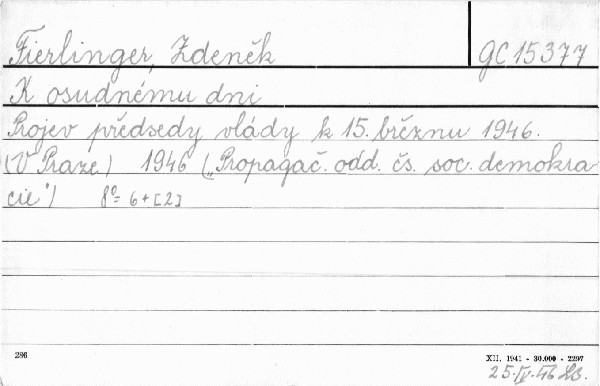 Fierlinger, Zdeněk GC 15377
K osudnému dni
Projev předsedy vlády k 15. březnu 1946.
(V Praze) 1946 („Propagač. odd. čs. soc. demokra
cie") 8º= 6+[2]
286
XII. 1941 - 30.000 - 2297
25.IV.46